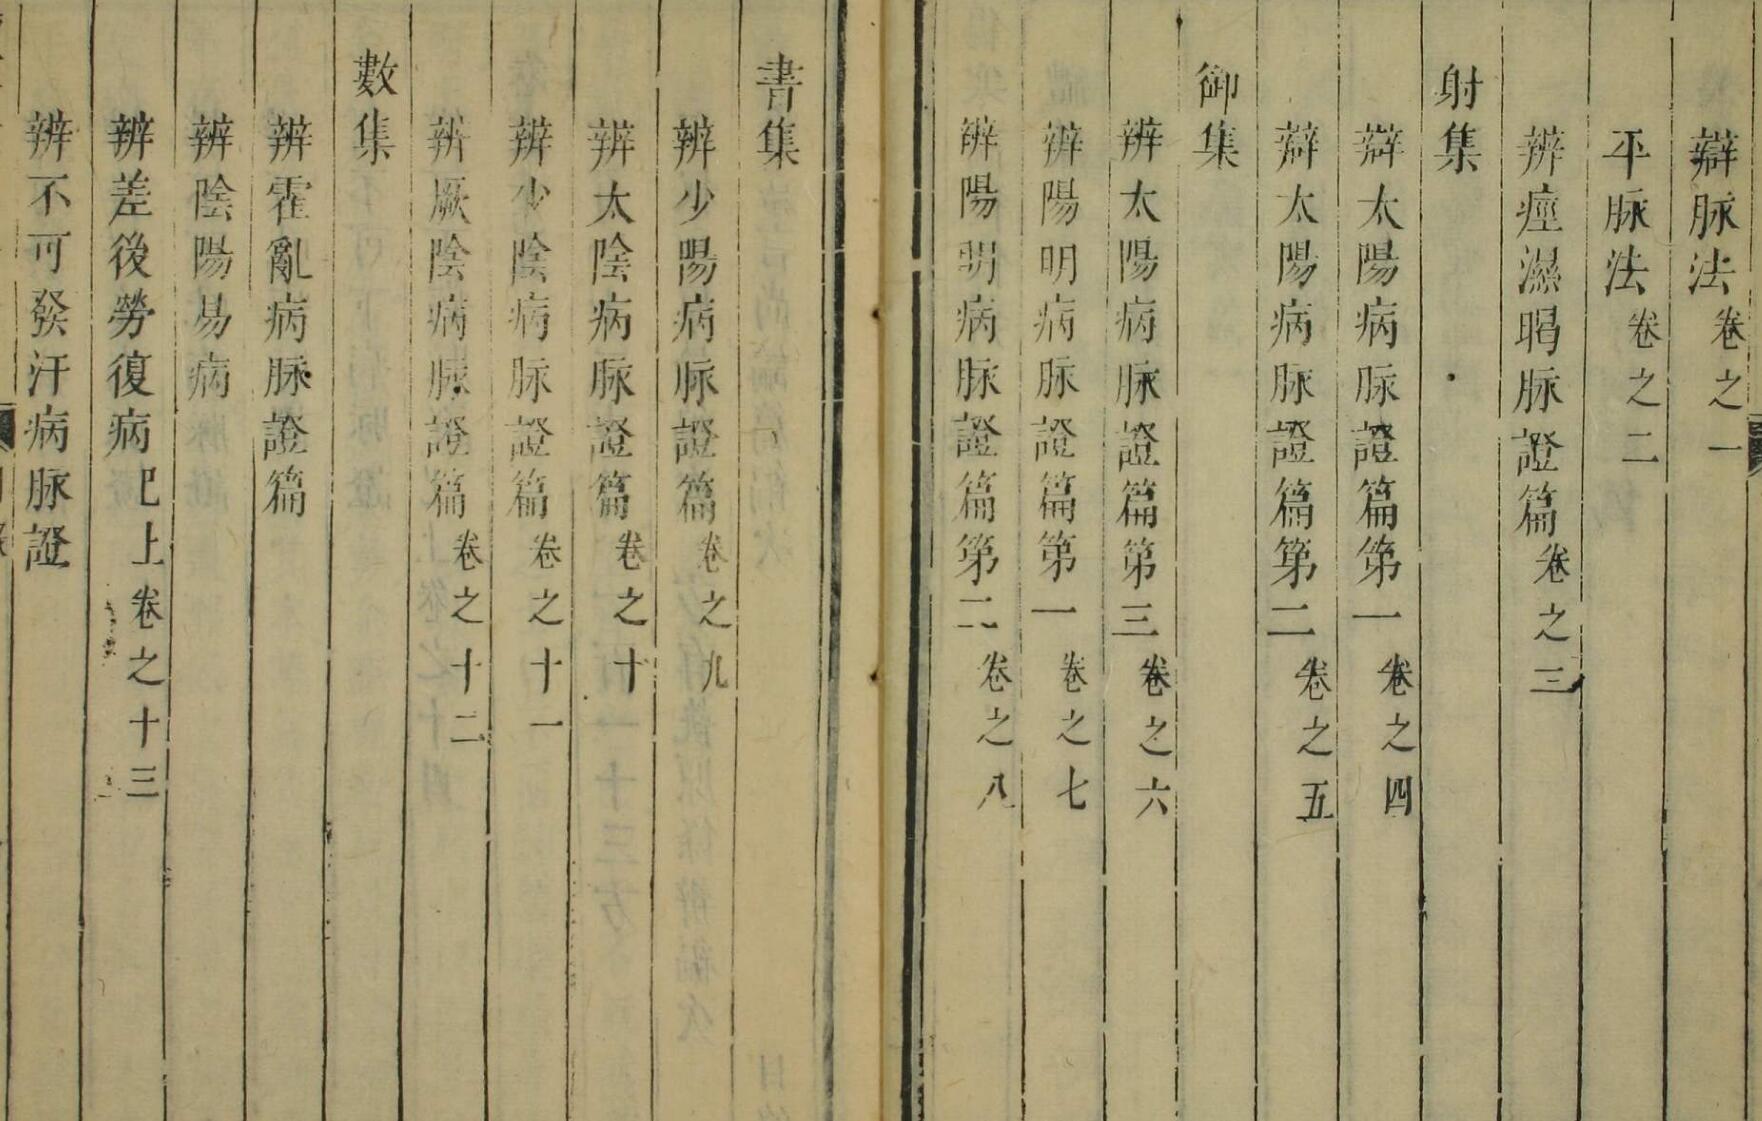 辯脉法卷之一
平脉法卷之二
辨痙濕暍脉證篇卷之三
射集
辯太陽病脉證篇第一卷之四
辯太陽病脉證篇第二卷之五
御集
辨太陽病脉證篇第三卷之六
辨陽明病脉證篇第一卷之七
辨陽明病脉證篇第二卷之八
書集
辨少陽病脉證篇卷之九
辨太陰病脉證篇卷之十
辨少陰病脉證篇卷之十一
辨厥陰病脉證篇卷之十二
數集
辨霍亂病脉證篇
辨陰陽易病
辨差後勞復病已上卷之十三
辨不可發汗病脉證